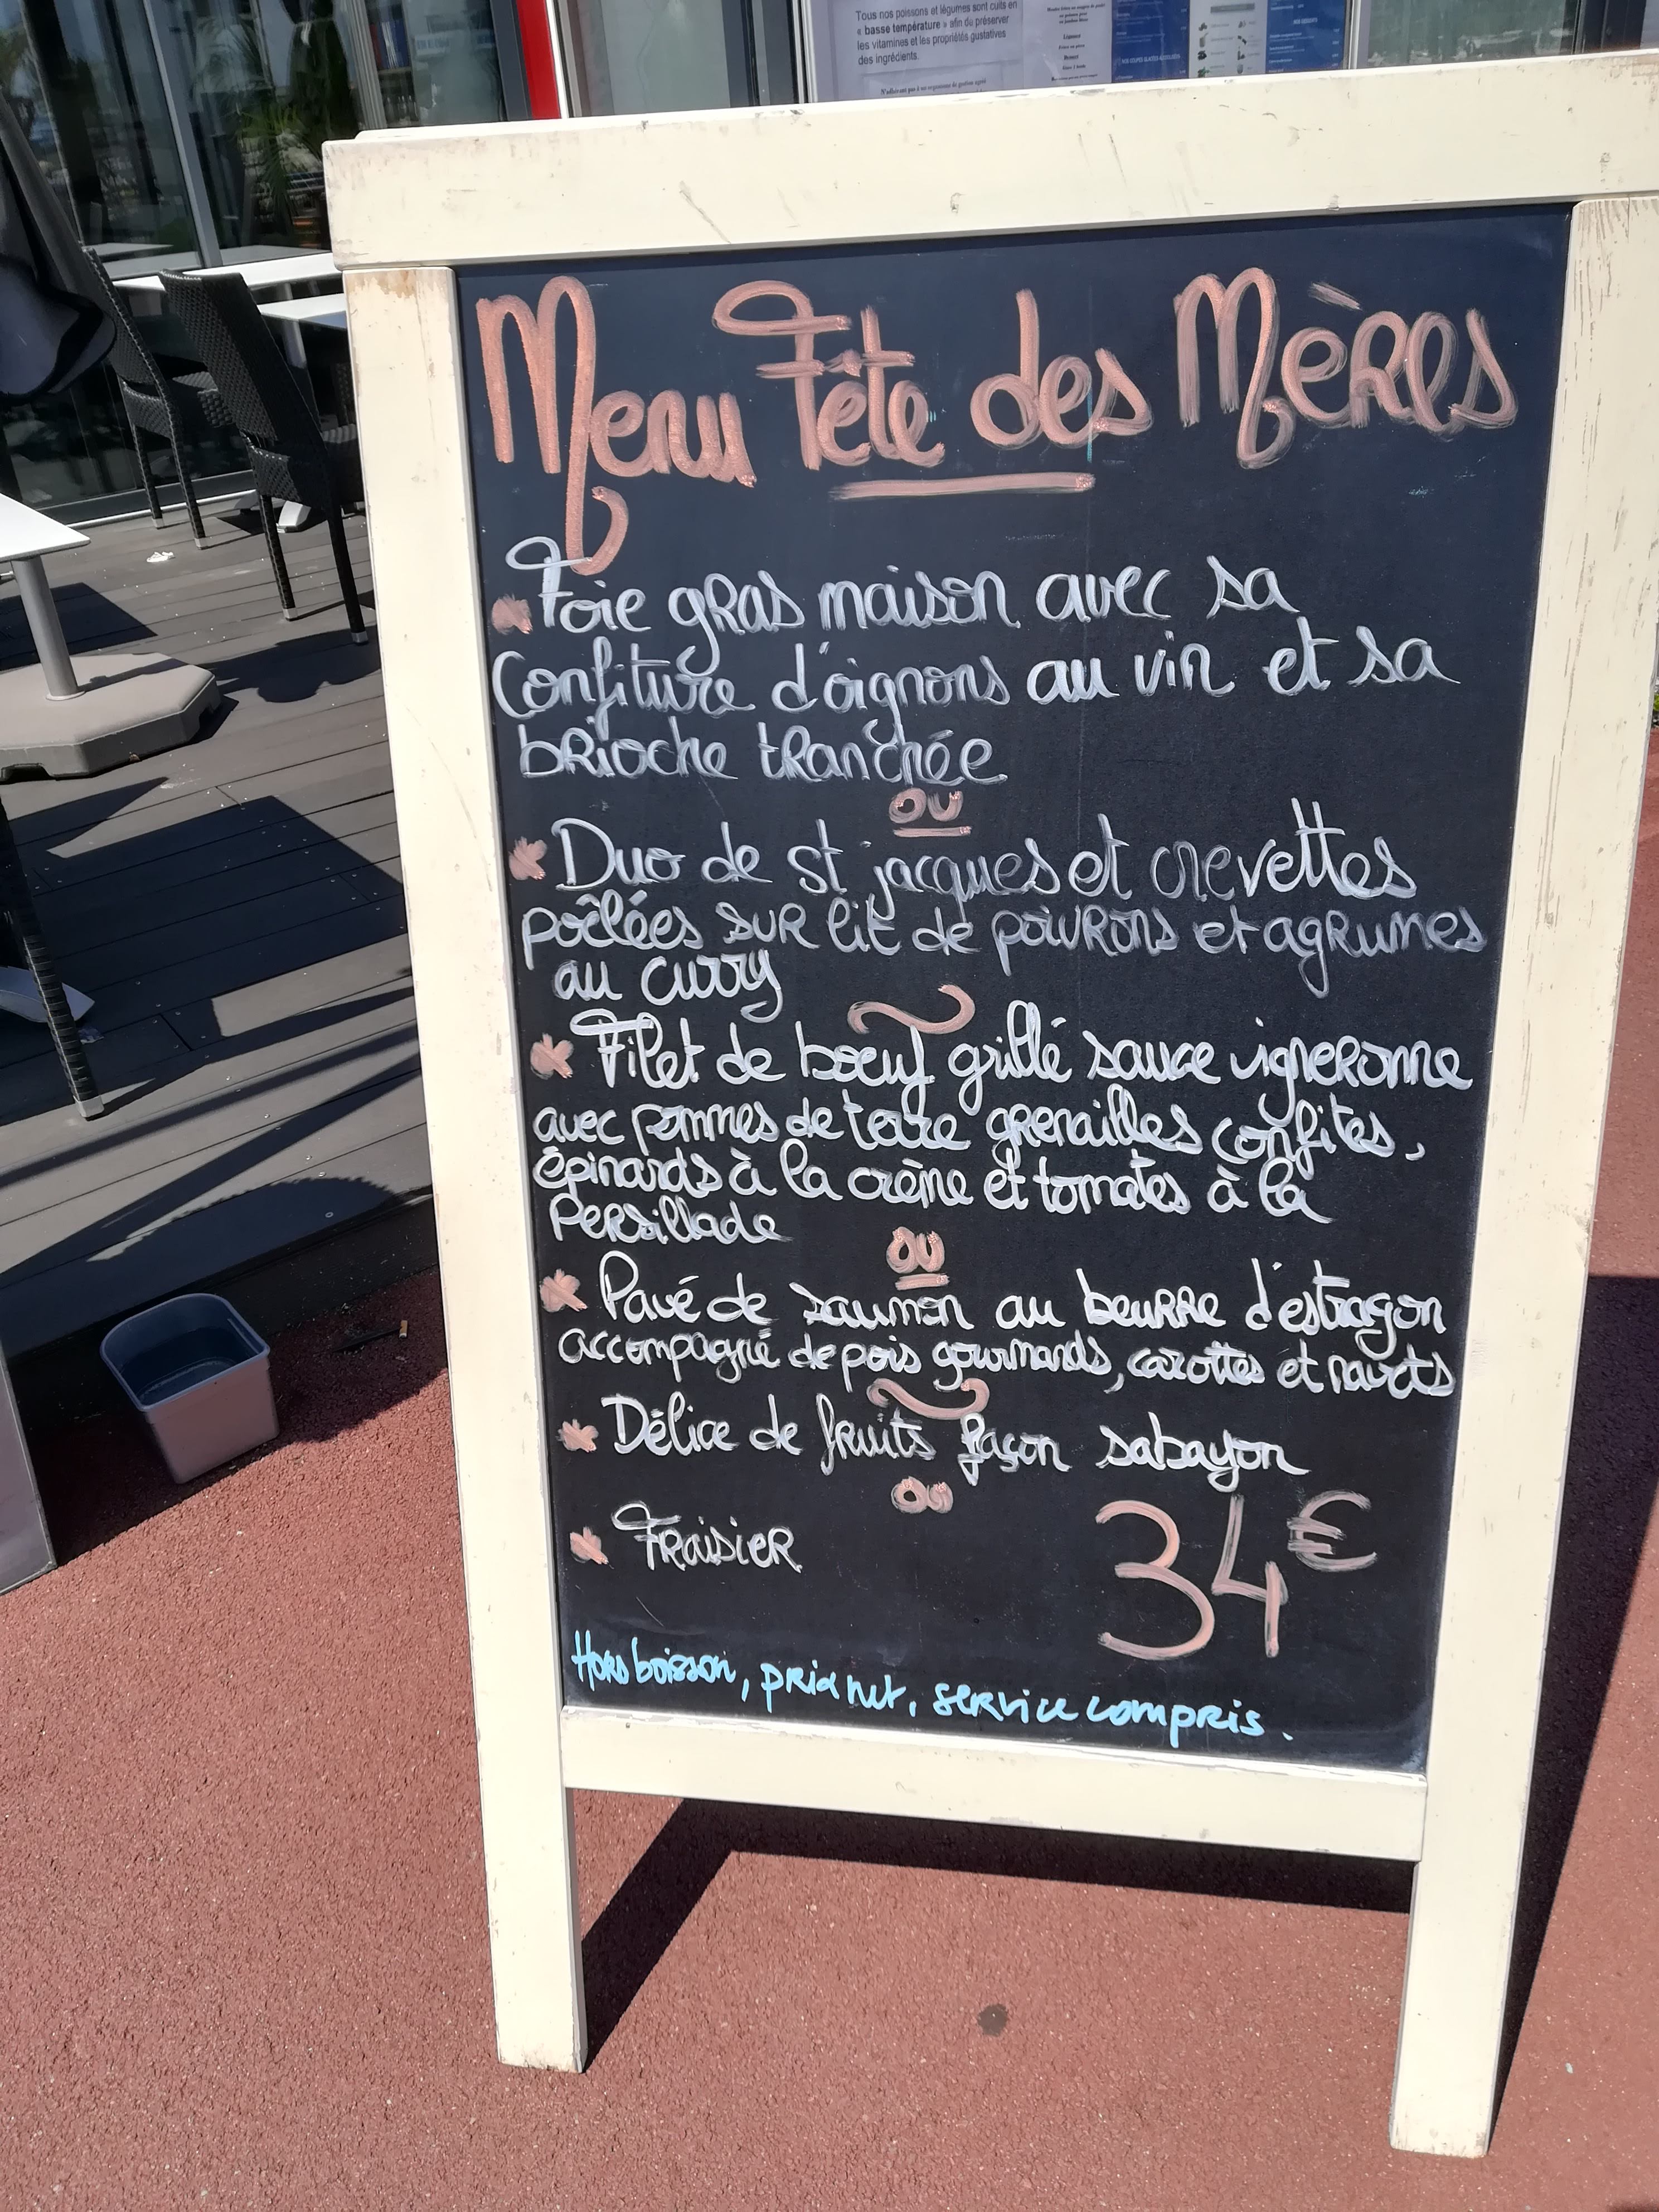 Tous nos poissons et légumes sont cuits en
« basse température » afin du préserver
les vitamines et les propriétés gustatives
des ingrédients.
Menu Fête des Mères
Foie gras maison avec sa
Confiture d'oignons au vin et sa
brioche tranchée
ou
Duo de St jacques et crevettes
poêlées sur lit de poivrons et agrumes
au curry
Filet de boeuf grillé sauce vigneronne
avec pommes de terre grenailles confites,
épinards à la crème et tomates à la
Persillade
ou
Pavé de saumon au beurre d'estragon
accompagné de pois gourmands, carottes et navets
Délice de fruits façon sabayon
ou
Fraisier
34€
Hors boisson, prix net, service compris.